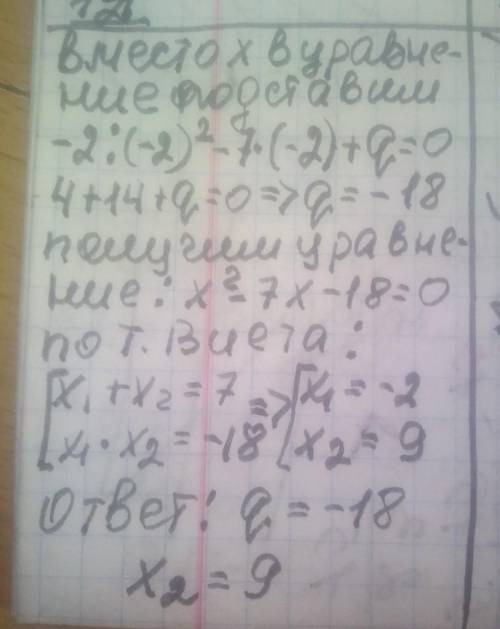 вместо x в уравне-
ние подставим
-2:(-2)²-7·(-2)+q=0
4+14+q=0=>q=-18
получим уравне-
ние: x²-7x-18=0
по т. Виета:
[x₁+x₂=7 => [x₁=-2
[x₁·x₂=-18 [x₂=9
Ответ: q=-18
x₂=9